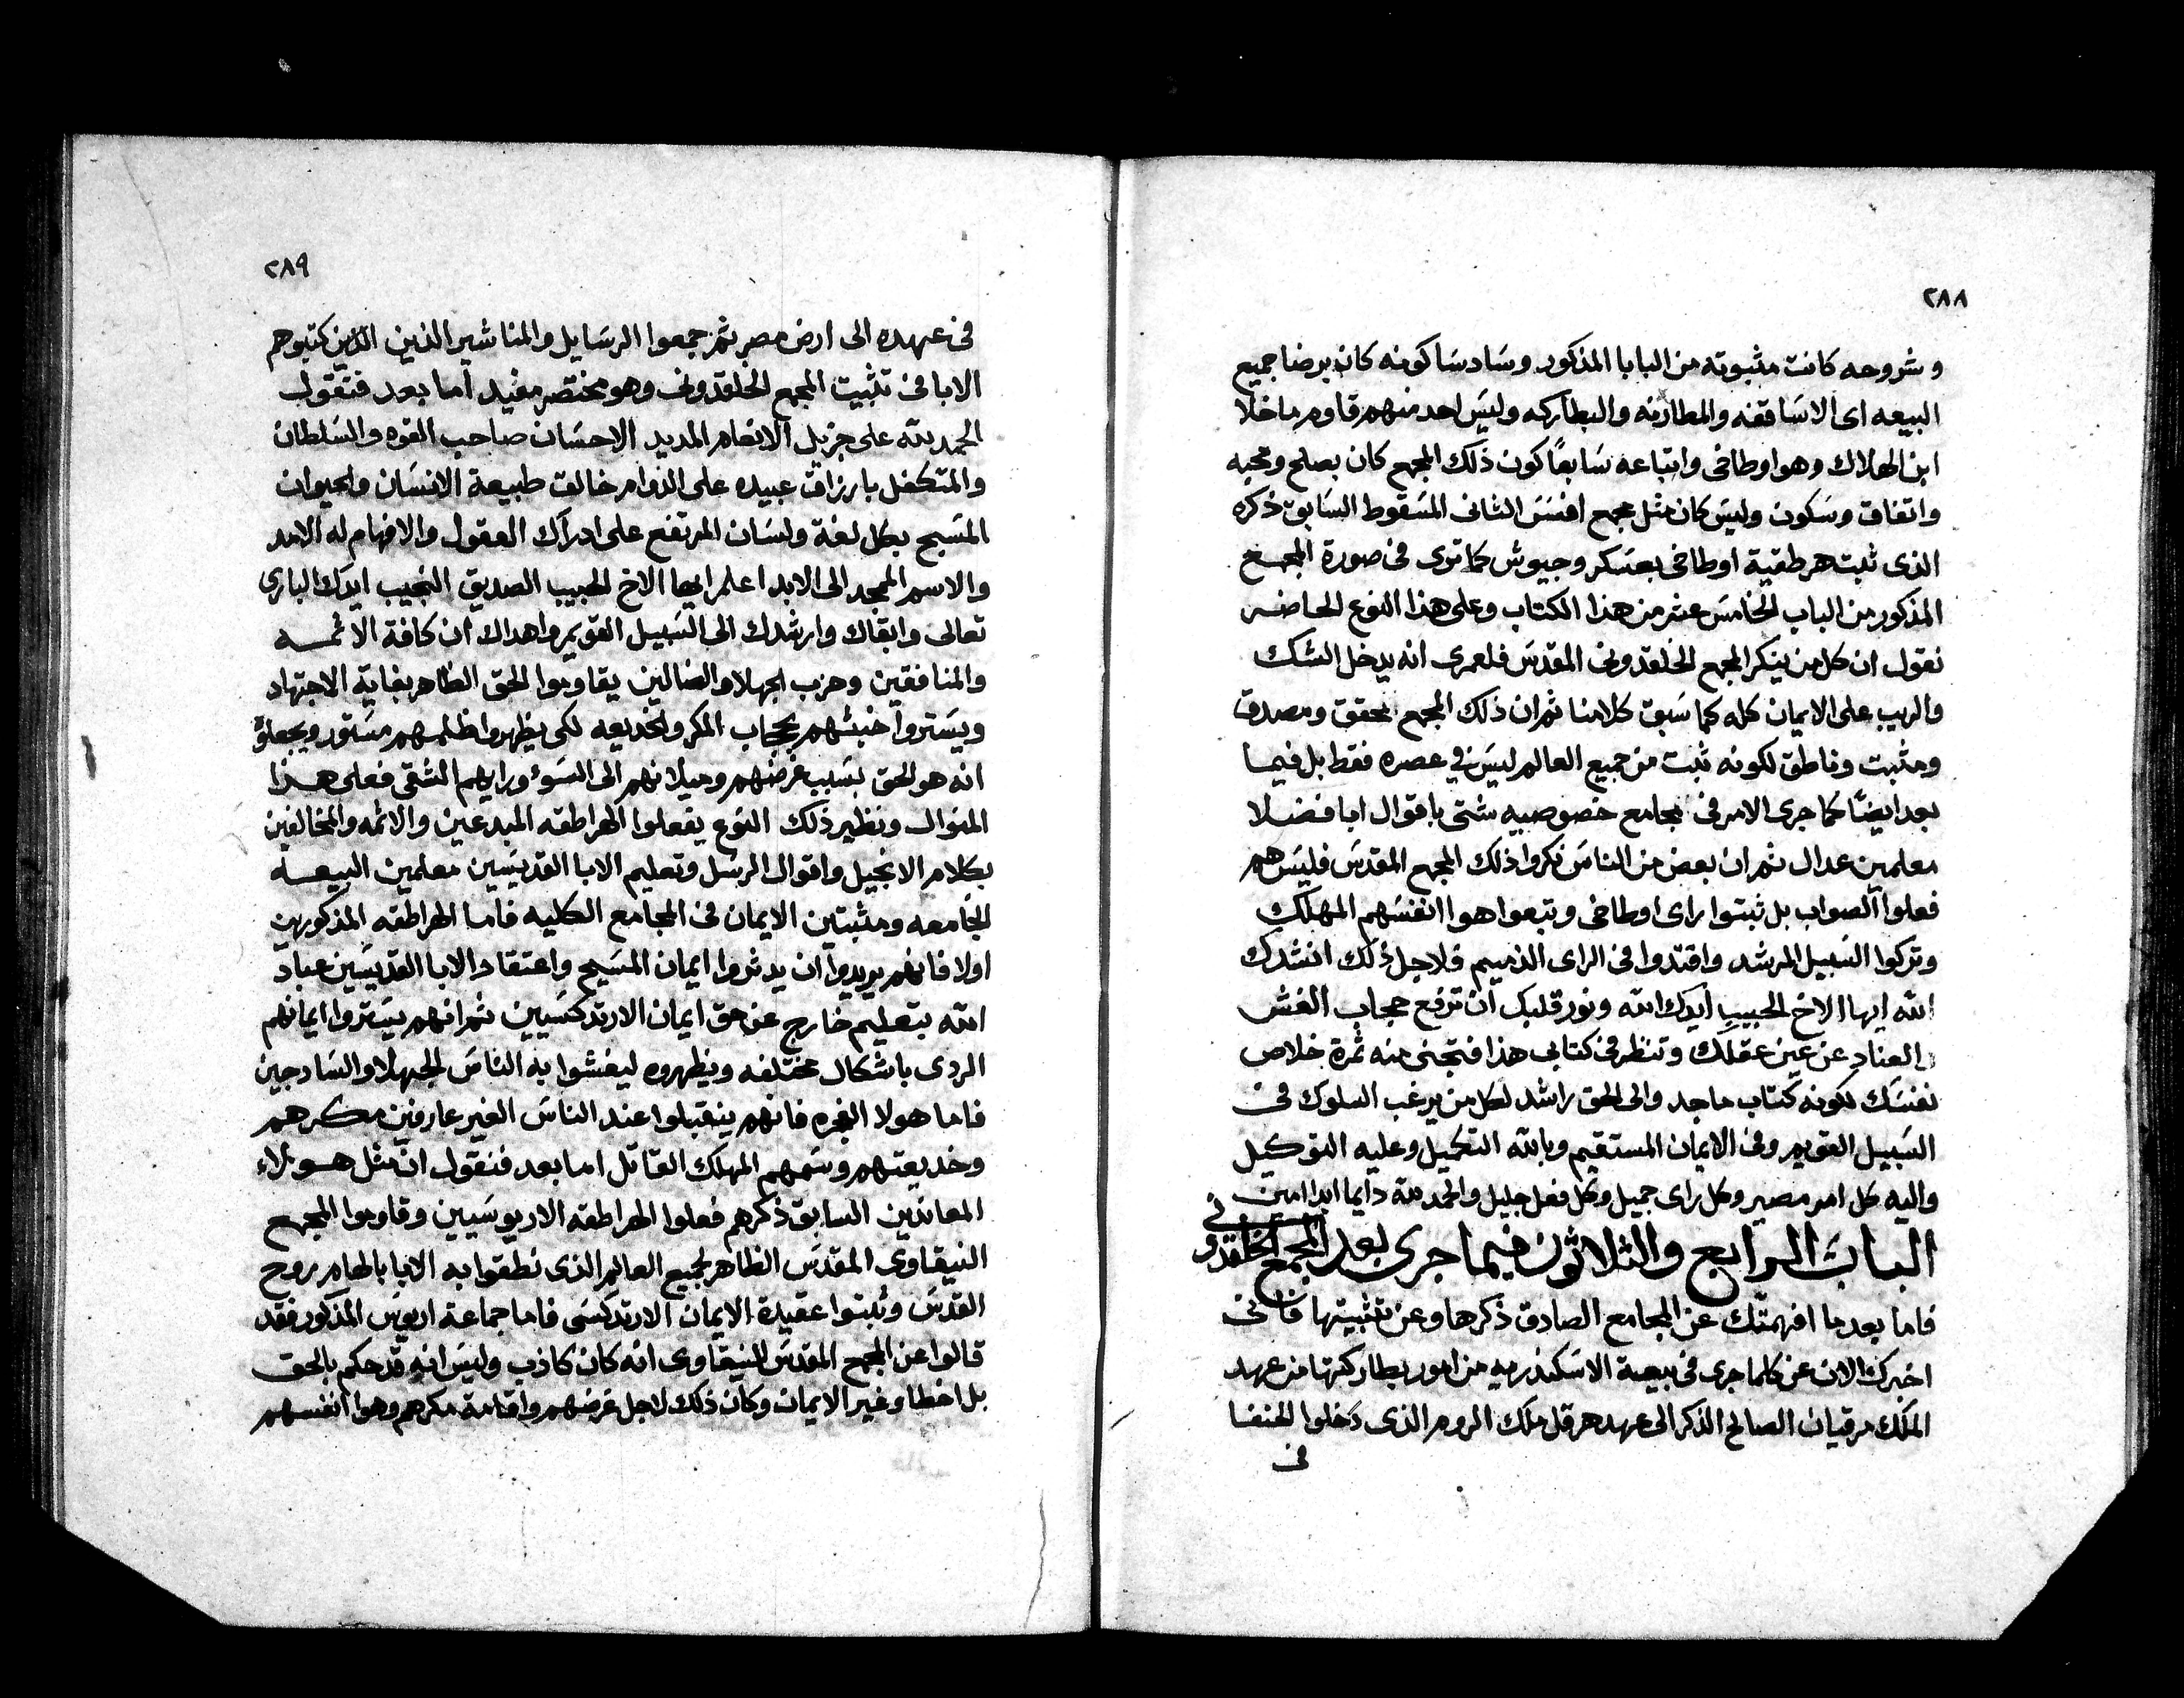 ٢٨٨
وشروحه كانت مثبوته من البابا المذكور وسادسا كونه كان برضا جميع
البيعه اى الاساقفه والمطارنه والبطاركه وليس احد منهم قاوم ما خلا
ابن الهلاك وهو اوطاخى واتباعه سابعًا كون ذلك المجمع كان بصلح ومحبه
واتفاق وسكون وليس كان مثل مجمع افسس الثانى المسقوط السابق ذكره
الذى ثبت هرطقية اوطاخى بعسكر وجيوش كما ترى فى صورة المجمع
المذكور من الباب الخامس عشر من هذا الكتاب وعلى هذا النوع الحاضر
نقول ان كل من ينكر المجمع الخلقدونى المقدس فلعمرى انه يدخل الشك
والريب على الايمان كله كما سبق كلامنا ثم ان ذلك المجمع محقق ومصدق
ومثبت وناطق لكونه ثبت من جميع العالم ليس فى عصره فقط بل فيما
بعد ايضًا كما جرى الامر فى مجامع خصوصيه شتى باقوال ابا فضلا
معلمين عدال ثم ان بعض من الناس نكروا ذلك المجمع المقدس فليس هم
فعلوا الصواب بل ثبتوا راى اوطاخى وتبعوا هوا انفسهم المهلك
وتركوا السبيل المرشد واقتدوا فى الراى الذميم فلاجل ذلك انشدك
الله ايها الاخ الحبيب ايدك الله ونور قلبك ان ترفع حجاب الغش
و العناد عن عين عقلك وتنظر فى كتابى هذا فتجنى منه ثمرة خلاص
نفسك لكونه كتاب ماجد والى الحق راشد لكل من يرغب السلوك فى
السبيل القويم وفى الايمان المستقيم وبالله التكميل وعليه التوكيل
واليه كل امر مصير وكل راى جميل وكل فعل جليل والحمد لله دايما ابدا امين
الباب الرابع والثلاثون فيما جرى بعد المجمع الخلقدونى
فاما بعد ما افهمتك عن المجامع الصادق ذكرها وعن تثبيتها فانى
اخبرك الان عن كلما جرى فى بيعة الاسكندريه من امور بطاركتها من عهد
الملك مرقيان الصالح الذكر الى عهد هرقل ملك الروم الذى دخلوا الحنفا
فى
٢٨٩
فى عهده الى ارض مصر ثم جمعوا الرسايل والمناشير الذين الذين كتبوهم
الابا فى تثبيت المجمع الخلقدونى وهو مختصر مفيد اما بعد فنقول
الحمد لله على جزيل الانعام المديد الاحسان صاحب القوه والسلطان
والمتكفل بارزاق عبيده على الدوام خالق طبيعة الانسان والحيوان
المسبح بكل لغة ولسان المرتفع على ادراك العقول والافهام له الامد
والاسم الممجد الى الابد اعلم ايها الاخ الحبيب الصديق النجيب ايدك البارى
تعالى وابقاك وارشدك الى السبيل القويم واهداك ان كافة الاثمه
والمنافقين وحزب الجهلا والضالين يقاوموا الحق الظاهر بغاية الاجتهاد
ويستروا خبثهم بحجاب المكر والخديعه لكى يظهروا ظلمهم مستور ويجعلوا
انه هو الحق بسبب غرضهم وميلانهم الى السوء ورايهم الشقى فعلى هذا
المنوال ونظير ذلك النوع يفعلوا الهراطقه المبدعين والاثمه والمخالفين
بكلام الانجيل واقوال الرسل وتعليم الابا القديسين معلمين البيعه
الجامعه ومثبتين الايمان فى المجامع الكليه فاما الهراطقه المذكورين
اولا فانهم يريدوا ان يدثروا ايمان المسيح واعتقاد الابا القديسين عباد
الله بتعليم خارج عن حق ايمان الارتدكسيين ثم انهم يستروا ايمانهم
الردى باشكال مختلفه ويظهروه ليغشوا به الناس الجهلا والسادجين
فاما هولا الفجره فانهم ينقبلوا عند الناس الغير عارفين مكرهم
وخديعتهم وسمهم المهلك القاتل اما بعد فنقول ان مثل هولاء
المعاندين السابق ذكرهم فعلوا الهراطقه الاريوسيين وقاوموا المجمع
النيقاوى المقدس الظاهر لجميع العالم الذى نطقوا به الابا بالهام روح
القدس وثبتوا عقيدة الايمان الارتدكسى فاما جماعة اريوس المذكور فقد
قالوا عن المجمع المقدس النيقاوى انه كان كاذب وليس انه قد حكم بالحق
بل اخطا وغير الايمان وكان ذلك لاجل غرضهم واقامة مكرهم وهوا انفسهم